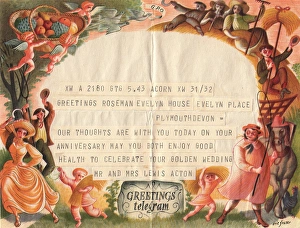 GPO
XW A 2180 GTG 5.43 ACORN XW 31/32
GREETINGS ROSEMAN EVELYN HOUSE EVELYN PLACE
PLYMOUTHDEVON =
OUR THOUGHTS ARE WITH YOU TODAY ON YOUR
ANNIVERSARY MAY YOU BOTH ENJOY GOOD
HEALTH TO CELEBRATE YOUR GOLDEN WEDDING
MR AND MRS LEWIS ACTON
GREETINGS
telegram